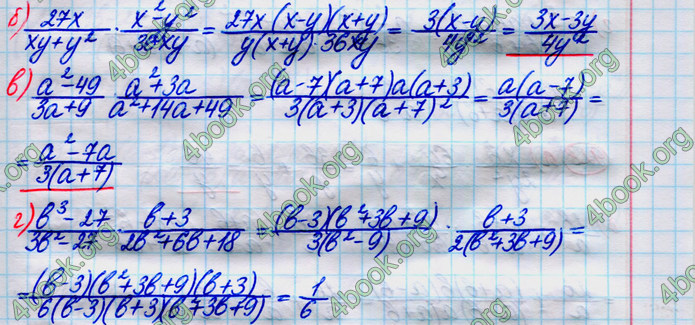 б) 27x/(xy+y²) · (x²-y²)/(36xy) = 27x(x-y)(x+y)/(y(x+y)·36xy) = 3(x-y)/(4y²) = (3x-3y)/(4y²)
в) (a²-49)/(3a+9) · (a²+3a)/(a²+14a+49) = (a-7)(a+7)a(a+3)/(3(a+3)(a+7)²) = a(a-7)/(3(a+7)) =
= (a²-7a)/(3(a+7))
г) (b³-27)/(3b²-27) · (b+3)/(2b²+6b+18) = (b-3)(b²+3b+9)/(3(b²-9)) · (b+3)/(2(b²+3b+9)) =
= (b-3)(b²+3b+9)(b+3)/(6(b-3)(b+3)(b²+3b+9)) = 1/6
4book.org
4book.org
4book.org
4book.org
4book.org
4book.org